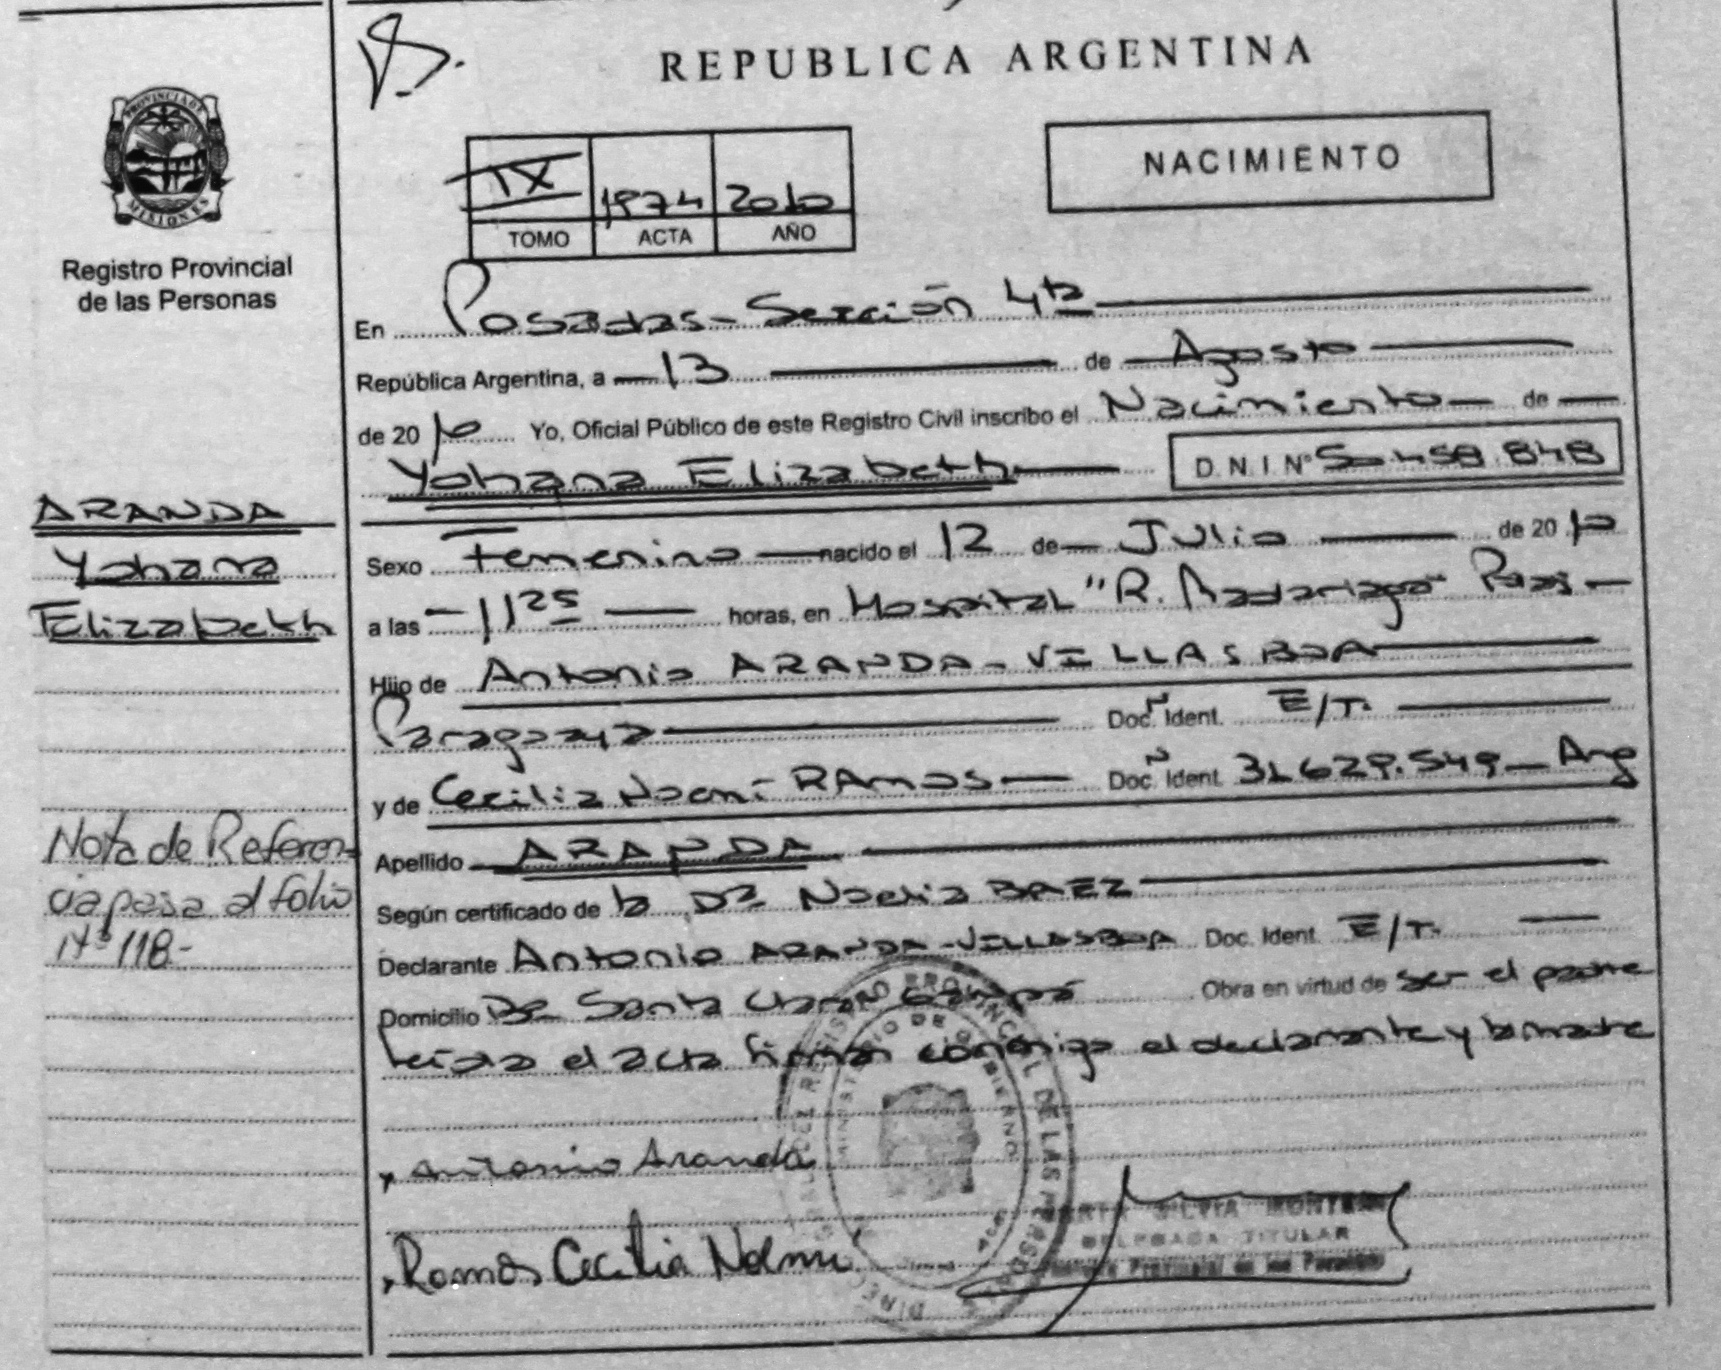 REPUBLICA ARGENTINA
PROVINCIA DE
MISIONES
Registro Provincial
de las Personas
NACIMIENTO
IX 1974 2010
TOMO ACTA AÑO
En Posadas - Sección 4ta
República Argentina, a 13 de Agosto
de 2010 Yo, Oficial Público de este Registro Civil inscribo el Nacimiento de
Yohana Elizabeth D.N.I. Nº 50.458.848
ARANDA
Yohana
Elizabeth
Sexo Femenino nacido el 12 de Julio de 2010
a las 11 25 horas, en Hospital "R. Madariaga" Pdas
Hijo de Antonio ARANDA - VILLASBOA
Paraguaya Doc. Ident. E/T.
y de Cecilia Noemí RAMOS Doc. Ident. 31.629.549 - Arg
Apellido ARANDA
Según certificado de la Dra Noelia BAEZ
Declarante Antonio ARANDA - VILLASBOA Doc. Ident. E/T.
Domicilio Bº Santa Clara Obra en virtud de ser el padre
leída el acta firman conmigo el declarante y la madre
Nota de Referen-
cia pasa al folio
Nº 118.-
Antonio Aranda
Ramos Cecilia Noemí
REGISTRO PROVINCIAL DE LAS PERSONAS
MINISTERIO DE GOBIERNO
SILVIA
DELEGADA TITULAR
Provincial de las Personas